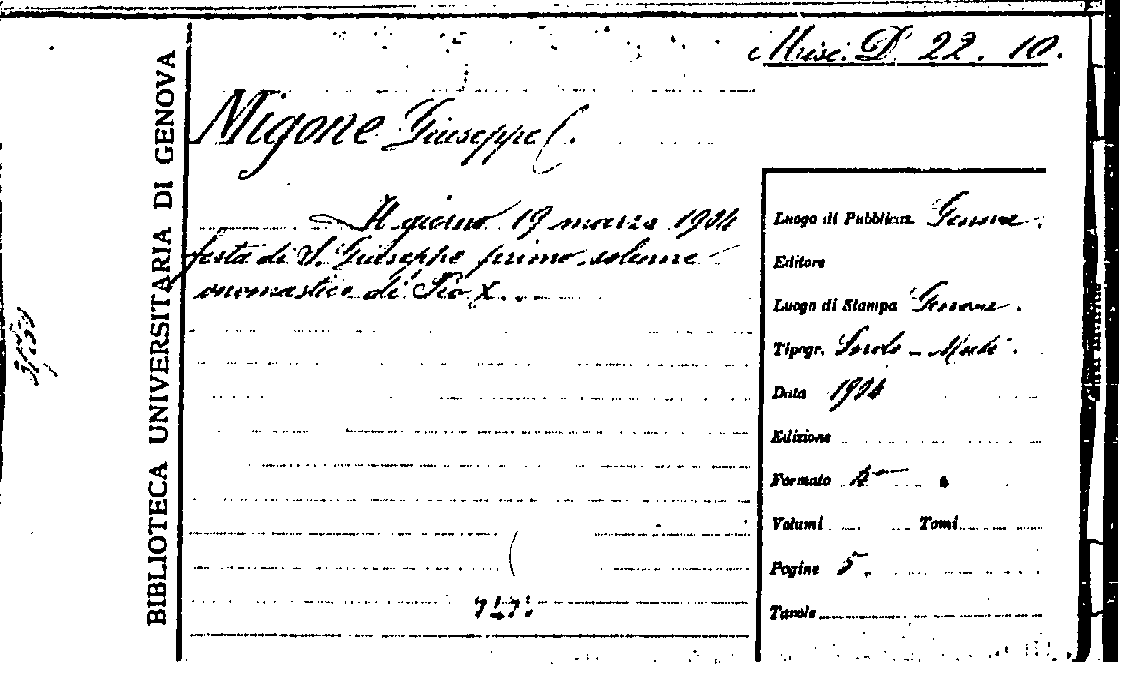 Misc. D. 22. 10.
BIBLIOTECA UNIVERSITARIA DI GENOVA
Migone Giuseppe
Il giorno 19 marzo 1904
festa di S. Giuseppe primo solenne
onomastico di Pio X.
Luogo di Pubblicaz. Genova.
Editore
Luogo di Stampa Genova.
Tipogr. Sordo-Muti.
Data 1904
Edizione
Formato
Volumi Tomi
Pagine 5.
Tavole